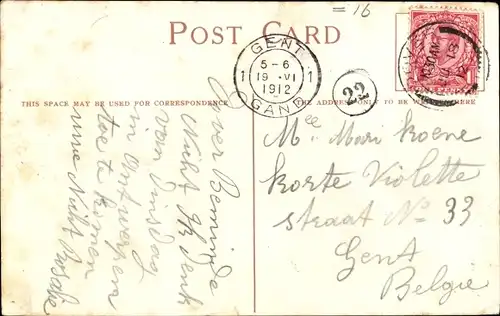 = 16
POST CARD
GENT
5-6
1 19 -VI 1
1912
GAND
29
THIS SPACE MAY BE USED FOR CORRESPONDENCE
THE ADDRESS ONLY TO BE WRITTEN HERE
Zeer Beminde
Nicht Ik denk
van Dinsdag
in Antwerpen
toe te komen
uwe Nicht
Mee Mari Koene
Korte Violette
straat No 33
Gent
Belgie